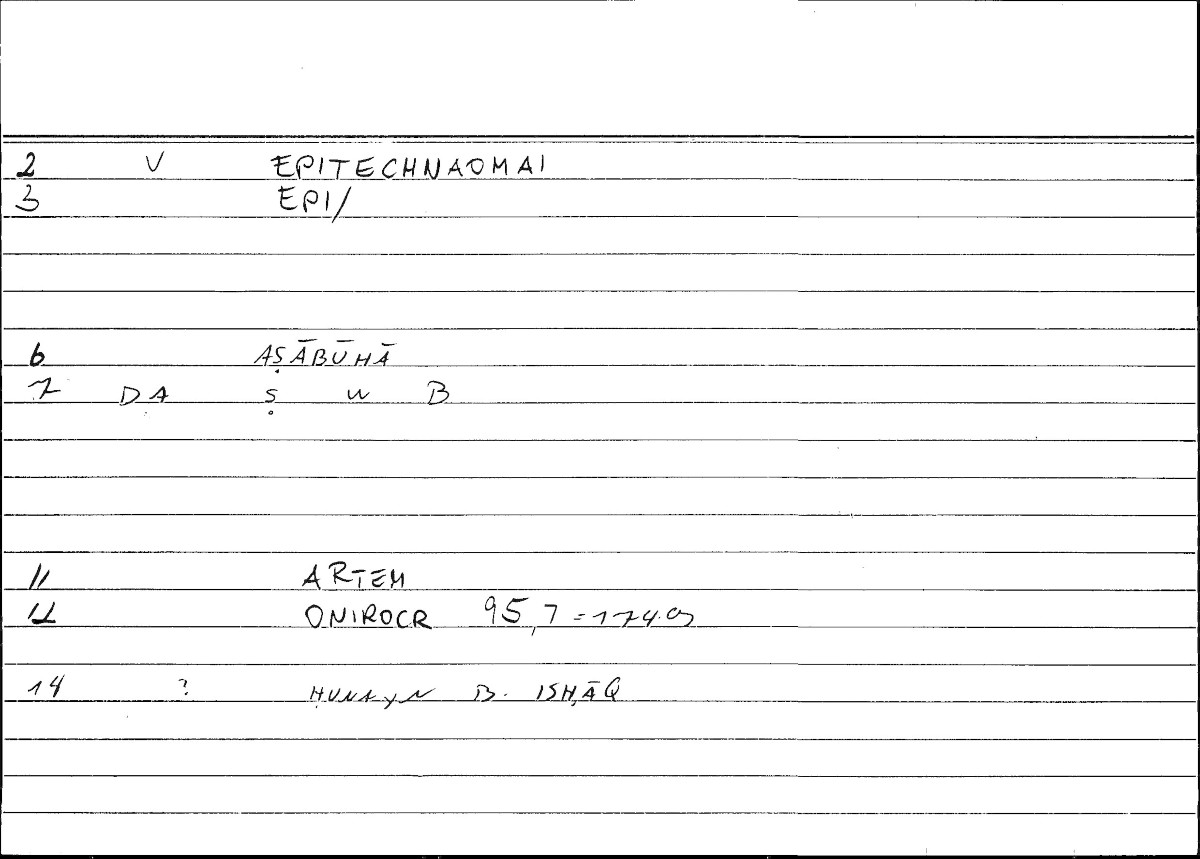 2 V EPITECHNAOMAI
3 EPI/
6 AṢĀBŪHĀ
7 DA Ṣ W B
11 ARTEM
12 ONIROCR 95,7 =
14 ? ḤUNAYN B. ISḤĀQ